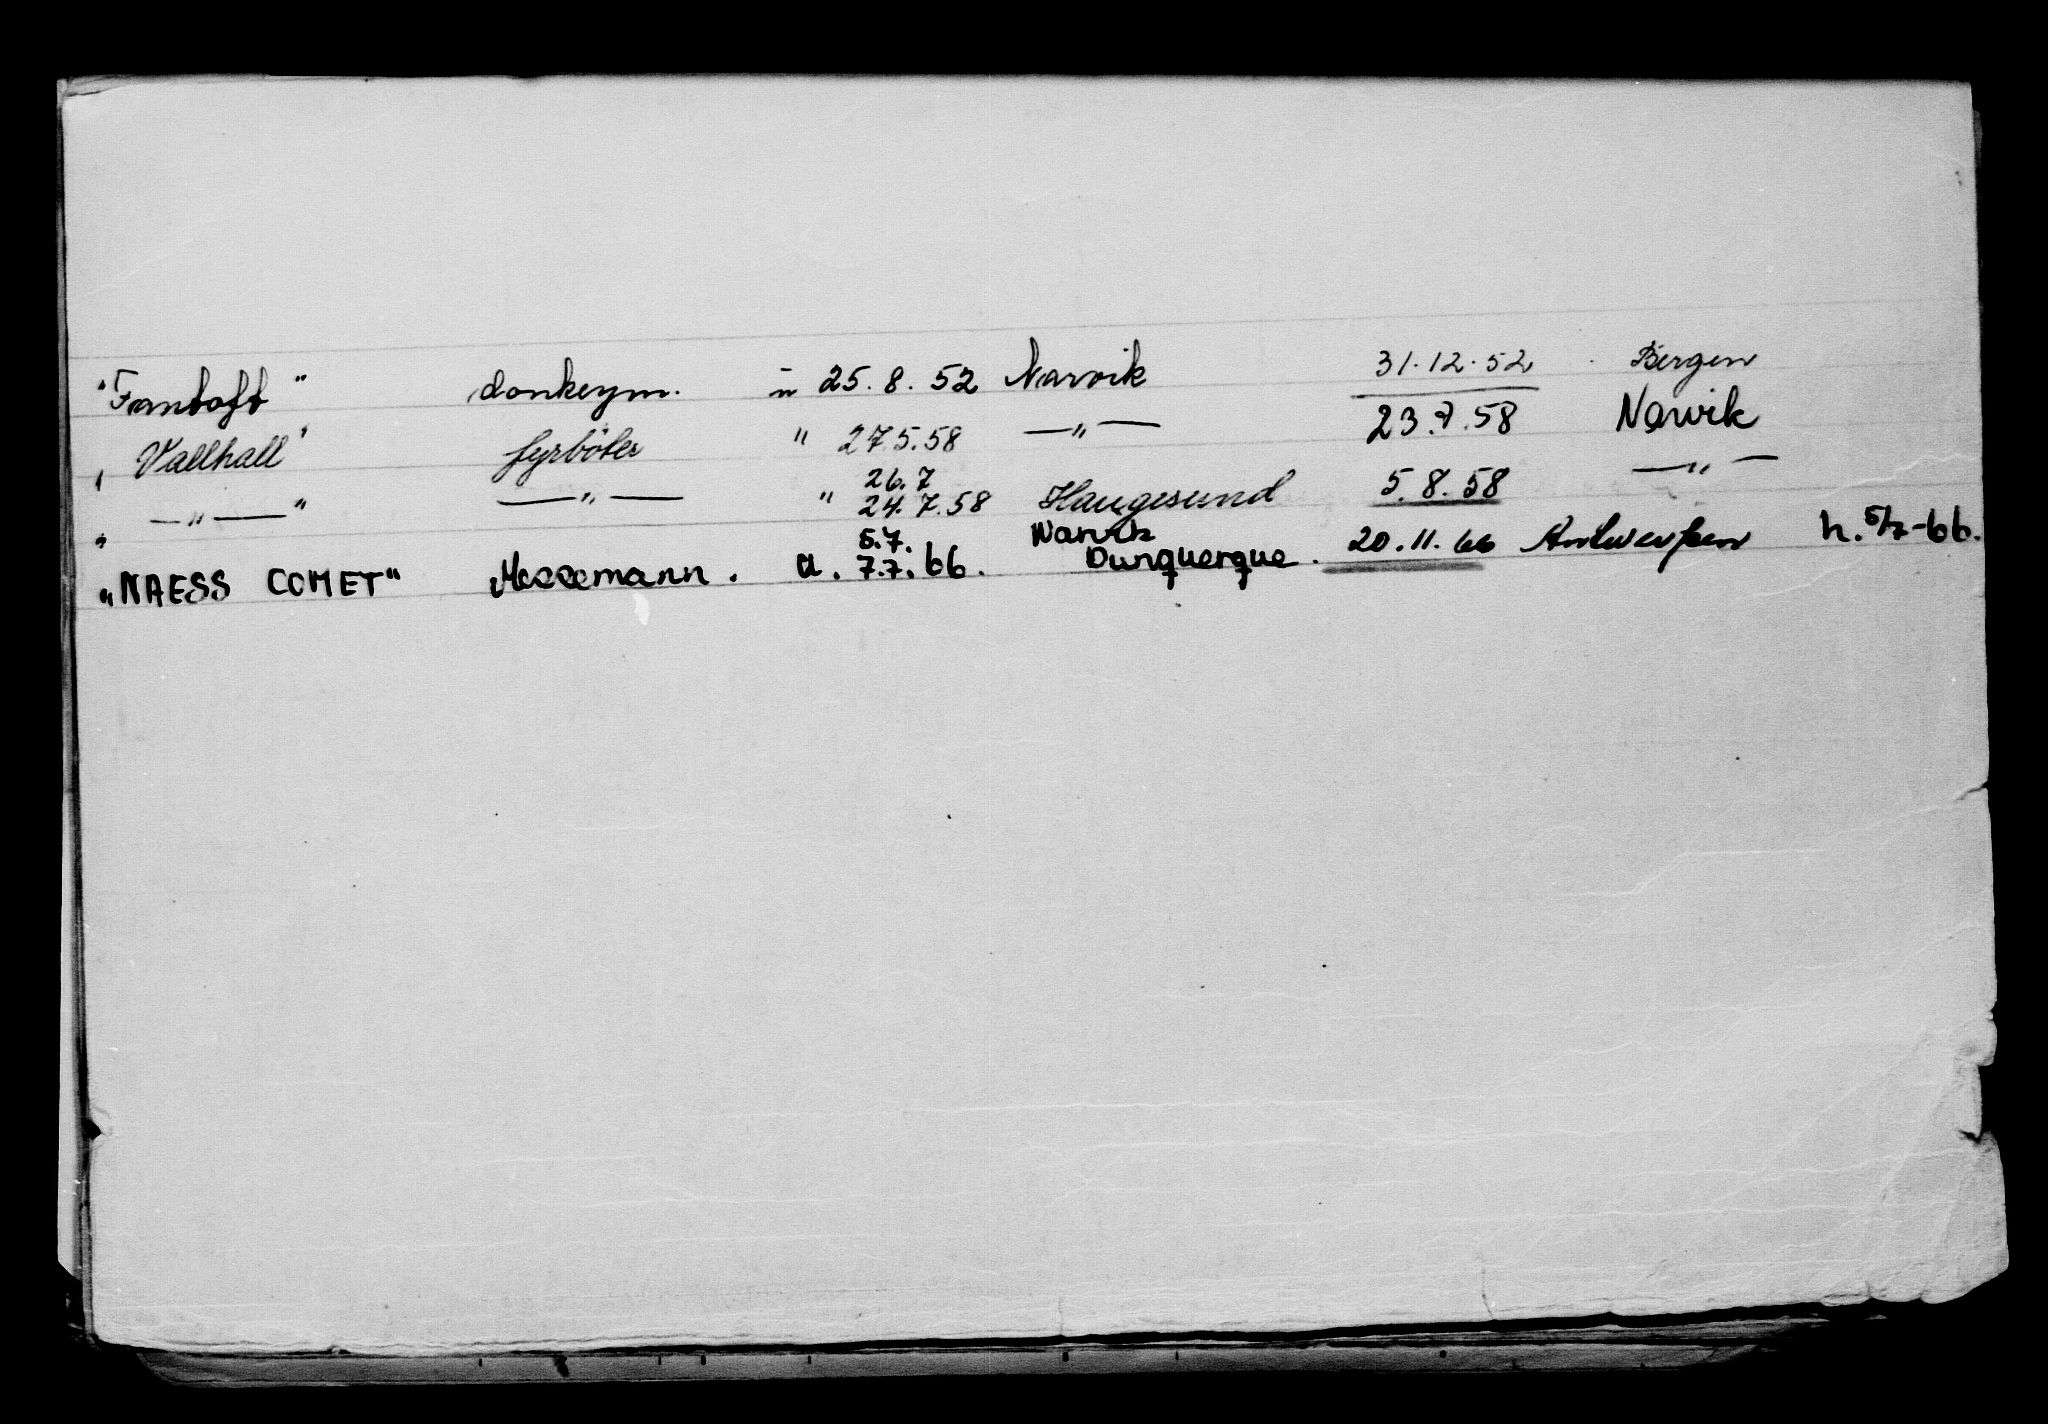 "Fantoft" donkeym. u 25.8.52 Narvik 31.12.52 Bergen
"Vallhall" fyrböter " 27.5.58 —"— 23.7.58 Narvik
26.7
" —"— " —"— " 24.7.58 Haugesund 5.8.58 —"—
5.7. Narvik
"NAESS COMET" Messemann. u. 7.7.66. Dunquerque. 20.11.66 Antwerpen h. 5/7-66.